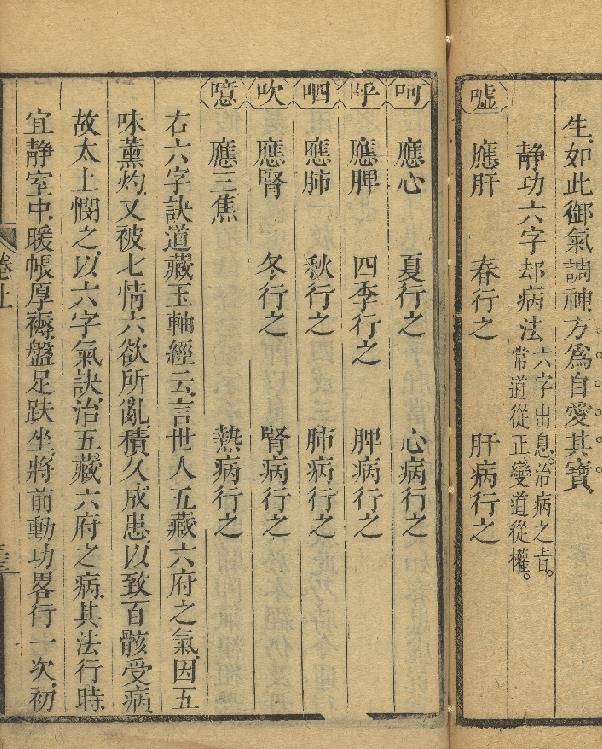 生如此御氣調神方爲自愛其寶
靜功六字却病法
六字出息治病之旨。
常道從正變道從權。
噓 應肝 春行之 肝病行之
呵 應心 夏行之 心病行之
呼 應脾 四季行之 脾病行之
呬 應肺 秋行之 肺病行之
吹 應腎 冬行之 腎病行之
噫 應三焦 熱病行之
右六字訣道藏玉軸經云言世人五藏六府之氣因五
味薰灼又被七情六欲所亂積久成患以致百骸受病
故太上憫之以六字氣訣治五藏六府之病其法行時
宜靜室中暖帳厚褥盤足趺坐將前動功畧行一次初
卷上